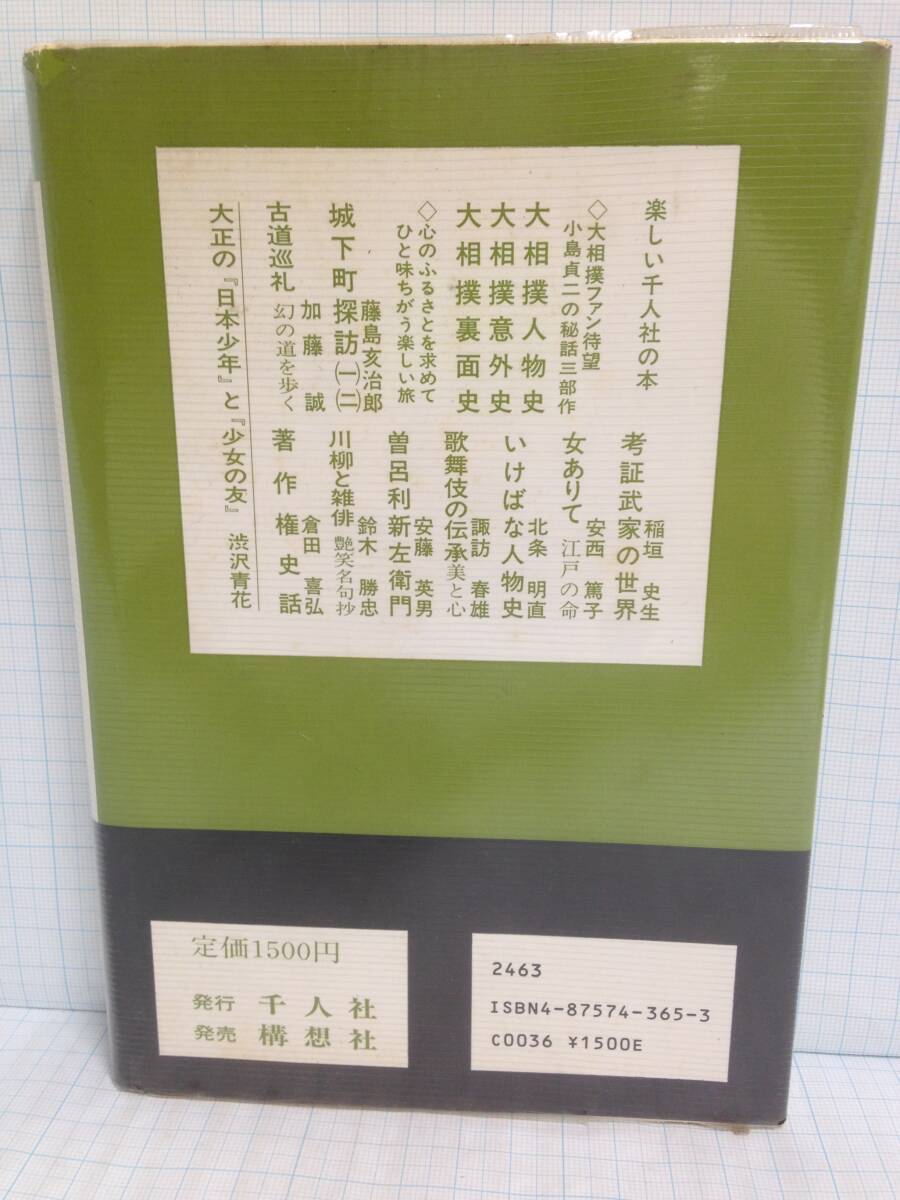 楽しい千人社の本
◇大相撲ファン待望
小島貞二の秘話三部作
大相撲人物史
大相撲意外史
大相撲裏面史
◇心のふるさとを求めて
ひと味ちがう楽しい旅
藤島亥治郎
城下町探訪㈠㈡
加藤 誠
古道巡礼 幻の道を歩く
稲垣 史生
考証武家の世界
安西 篤子
女ありて 江戸の命
北条 明直
いけばな人物史
諏訪 春雄
歌舞伎の伝承 美と心
安藤 英男
曽呂利新左衛門
鈴木 勝忠
川柳と雑俳 艶笑名句抄
倉田 喜弘
著作権史話
大正の『日本少年』と『少女の友』 渋沢青花
定価1500円
発行 千人社
発売 構想社
2463
ISBN4-87574-365-3
C0036 ¥1500E